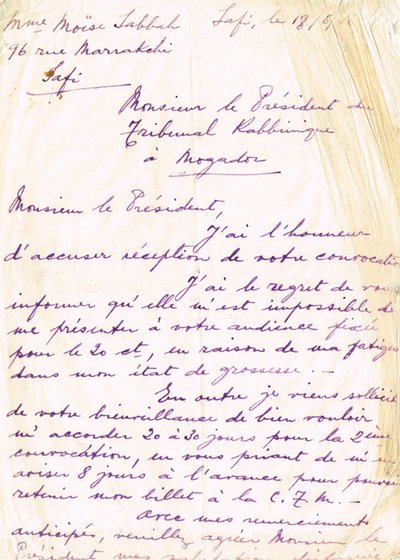 Mme Moïse Sabbah Safi, le 18/5/
96 rue Marrakchi
Safi
Monsieur le Président du
Tribunal Rabbinique
à Mogador
Monsieur le Président,
J'ai l'honneur
d'accuser réception de votre convocatio
J'ai le regret de vous
informer qu'elle m'est impossible de
me présenter à votre audience fixée
pour le 20 ct, en raison de ma fatigue
dans mon état de grossesse. -
En outre je viens sollicite
de votre bienveillance de bien vouloir
m'accorder 20 à 30 jours pour la 2ème
convocation, en vous priant de m'en
aviser 8 jours à l'avance pour pouvoir
retenir mon billet à la C.T.M. -
Avec mes remerciements
anticipés, veuillez agréer Monsieur le
Président mes